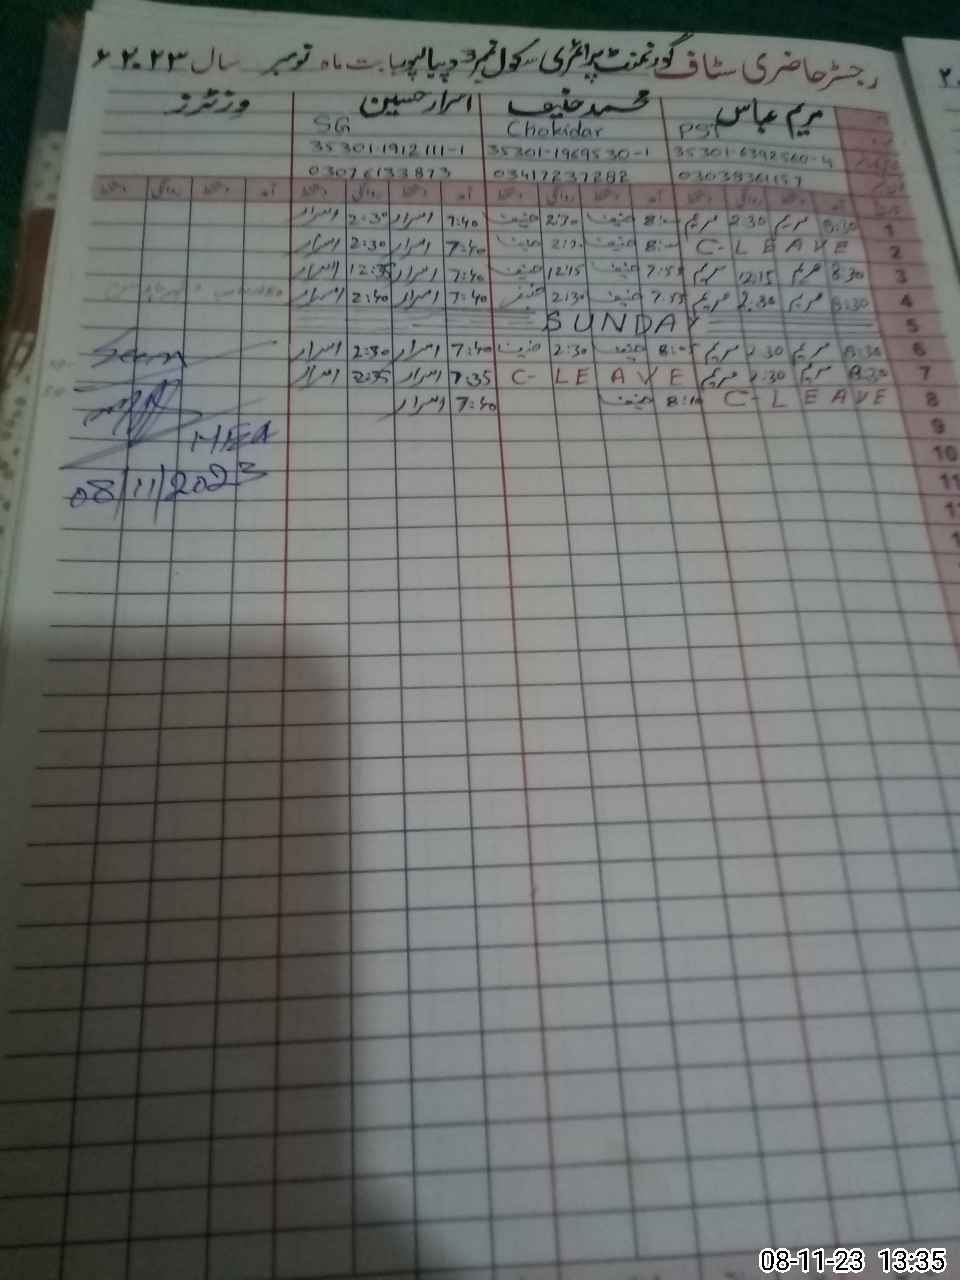 رجسٹر حاضری سٹاف گورنمنٹ پرائمری سکول نمبر 3 دیپالپور بابت ماہ نومبر سال ۲۰۲۳ء
مریم عباس محمد حنیف اسرار حسین وزیٹرز
PST Chokidar SG
35301-6392560-4 35301-1969530-1 35301-1912111-1
03417237282 03076133873
آمد دستخط روانگی دستخط آمد دستخط روانگی دستخط آمد دستخط روانگی دستخط آمد دستخط روانگی دستخط
1 8:30 مریم 2:30 مریم 8:00 حنیف 2:30 حنیف 7:40 اسرار 2:30 اسرار
2 C-LEAVE 8:00 حنیف حنیف 7:40 اسرار 2:30 اسرار
3 8:30 مریم 12:15 مریم 7:55 حنیف 12:15 حنیف 7:40 اسرار 12:35 اسرار
4 8:30 مریم 2:30 مریم 7:55 حنیف 2:30 حنیف 7:40 اسرار 2:40 اسرار
5 SUNDAY
6 8:30 مریم 2:30 مریم حنیف 2:30 حنیف 7:40 اسرار 2:30 اسرار
7 8:30 مریم 2:30 مریم C-LEAVE 7:35 اسرار 2:35 اسرار
8 C-LEAVE 8:10 حنیف 7:40 اسرار
9
MEA
10
08/11/2023
11
08-11-23 13:35